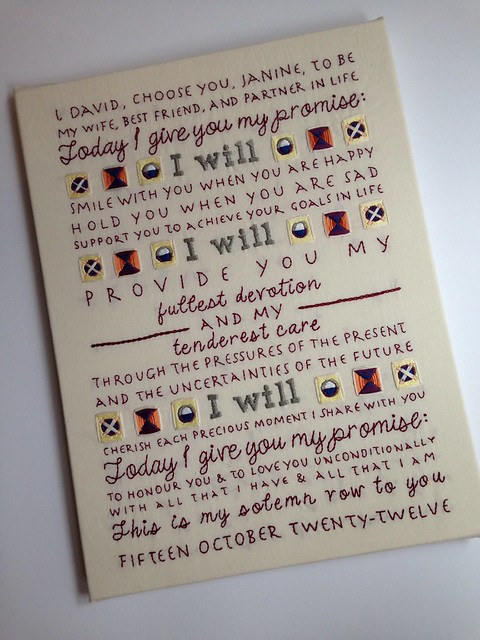 I, DAVID, CHOOSE YOU, JANINE, TO BE
MY WIFE, BEST FRIEND, AND PARTNER IN LIFE
Today I give you my promise:
I will
SMILE WITH YOU WHEN YOU ARE HAPPY
HOLD YOU WHEN YOU ARE SAD
SUPPORT YOU TO ACHIEVE YOUR GOALS IN LIFE
I will
PROVIDE YOU MY
fullest devotion
AND MY
tenderest care
THROUGH THE PRESSURES OF THE PRESENT
AND THE UNCERTAINTIES OF THE FUTURE
I will
CHERISH EACH PRECIOUS MOMENT I SHARE WITH YOU
Today I give you my promise:
TO HONOUR YOU & TO LOVE YOU UNCONDITIONALLY
WITH ALL THAT I HAVE & ALL THAT I AM
This is my solemn vow to you
FIFTEEN OCTOBER TWENTY-TWELVE